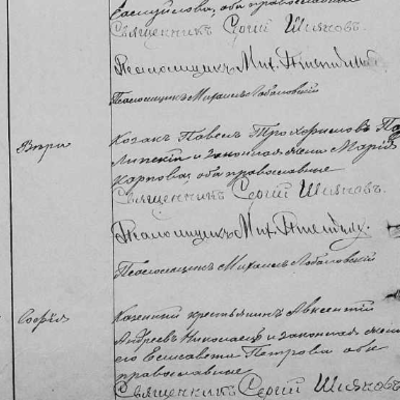 оба православные
Священникъ Сергій Шияновъ.
Псаломщикъ Мих.
Псаломщикъ Михаилъ Лобановскій
Вѣра
Козакъ Павелъ Трохимовъ
и законная жена Марія
Карпова, оба православные
Священникъ Сергій Шияновъ.
Псаломщикъ Мих.
Псаломщикъ Михаилъ Лобановскій
Софія
Казенный крестьянинъ Авксентій
Андреевъ Николаевъ и законная жена
его Елисавета Петрова оба
православные
Священникъ Сергій Шияновъ